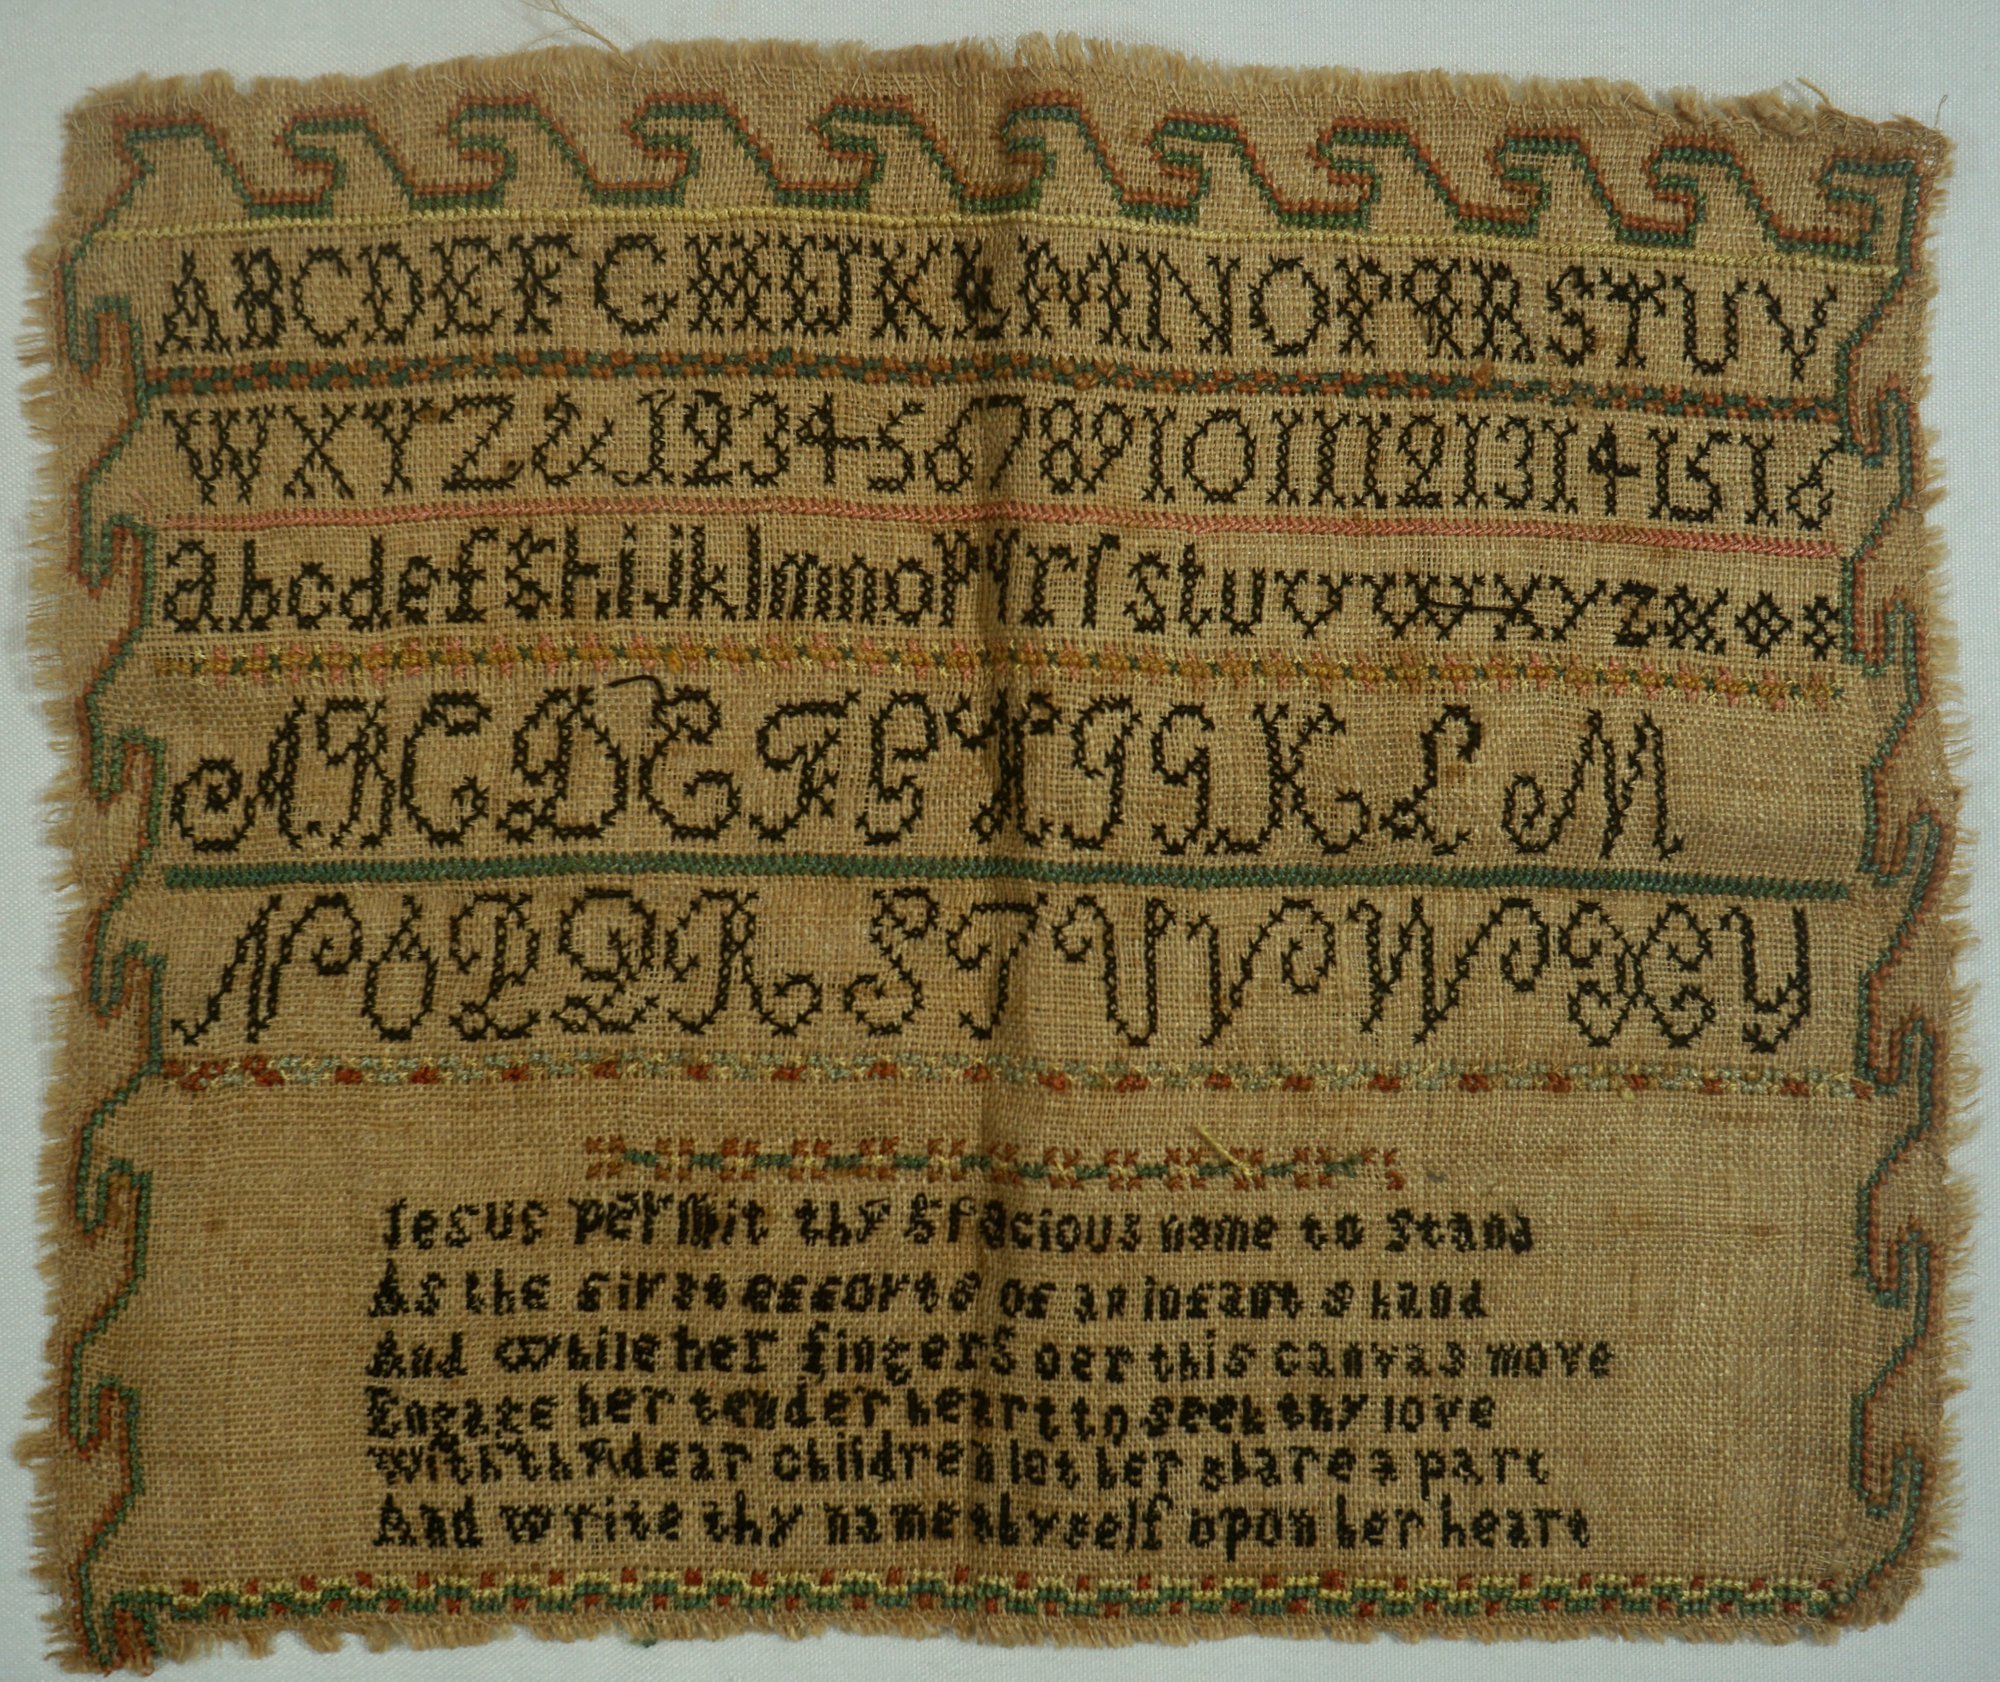 ABCDEFGHIJKLMNOPQRSTUV
WXYZ&12345678910111213141516
abcdefghijklmnopqrſstuvwxyz
ABCDEFGHIJKLM
NOPQRSTUVWXY
Jesus permit thy gracious name to stand
As the first efforts of an infants hand
And while her fingers oer this canvas move
Engage her tender heart to seek thy love
With thy dear children let her share a part
And write thy name thyself upon her heart